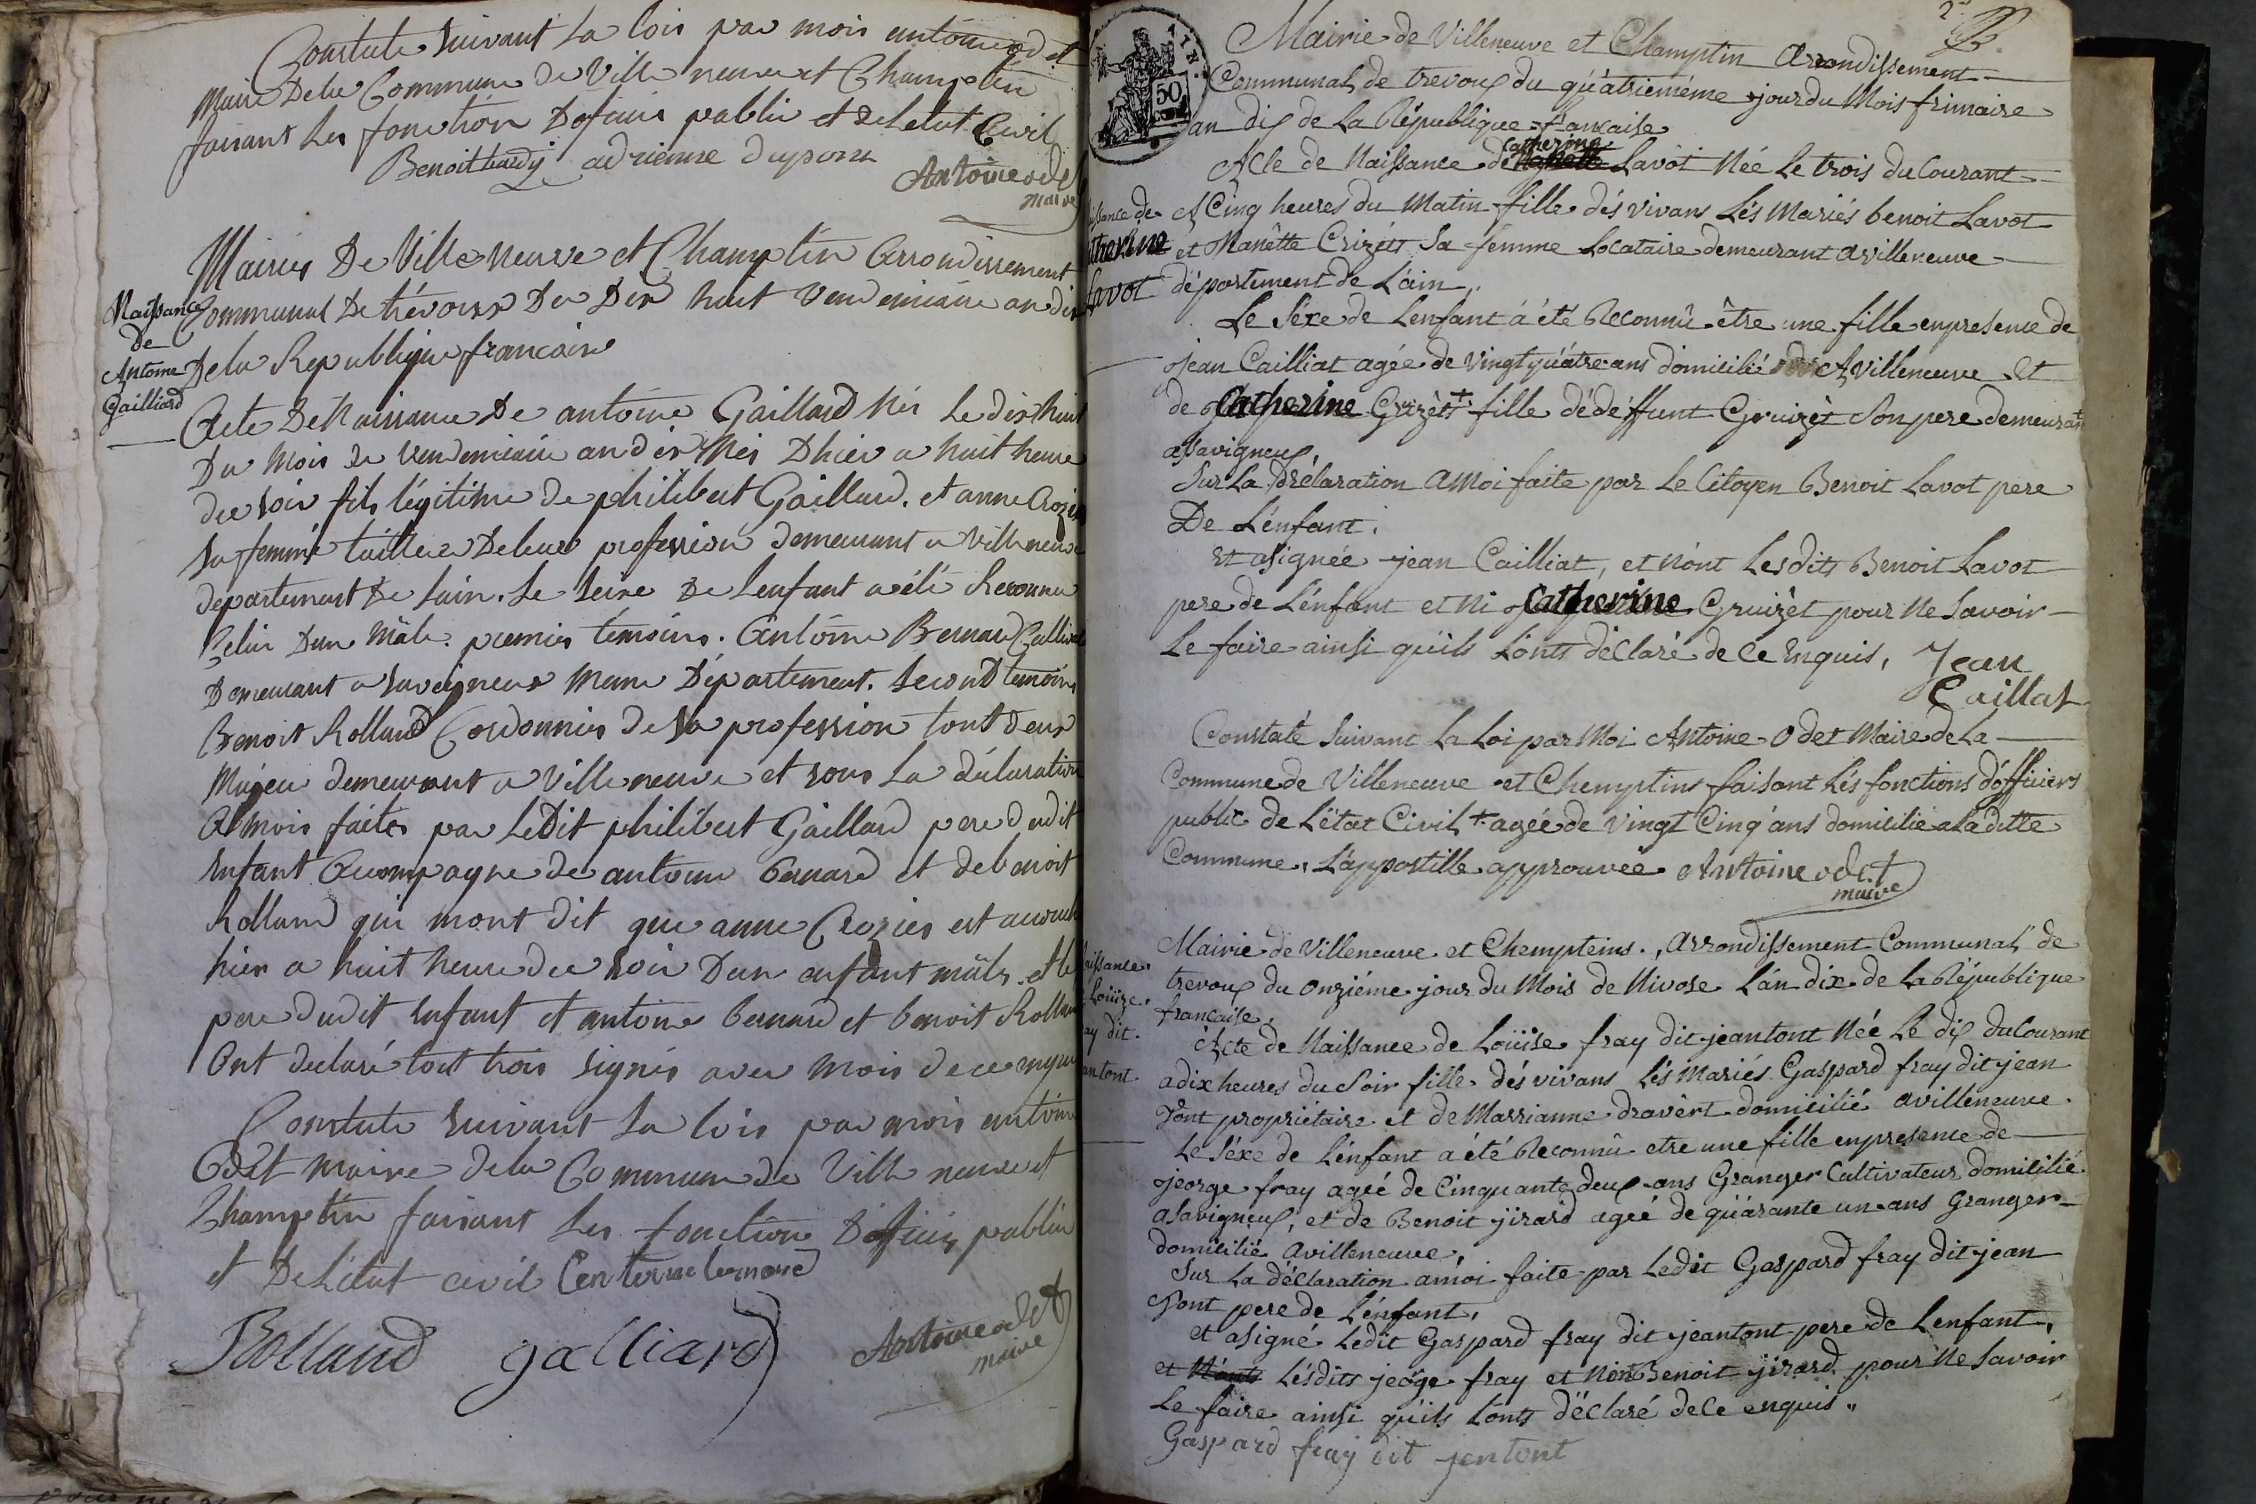 Constate suivant la lois par mois antoine odet
Maire Delu Commune de Ville neuve et Champtin
faisant les fonction Dofaier publiv et deletut Civil
Benoit hardy adrienne dupons
Antoine odet
maire
Mairies De Ville neuve et Champtin Arrondissement
Communal De trévoux Du Dix huit Vendemiaire an dix
Naissance
de
Antoine
Gailliard
Delu Republique francaise
Acte De Naissance De antoine Gaillard Nés le dix huit
Du Mois de Vendemiaire an dix Nés Dhier a huit heure
du soir fils légitime de philibert Gaillard. et anne Crozier
sa femme tailleur Deleur profession demeurant a Ville neuve
departement De lain. Le sexe De lenfant a été Reconnu
Celui Dun Mâle. premier témoins. Antoine Bernard Cultiv
Demeurant a saveigneux Meme Département. second temoins
Benoit Rolland Cordonnier de sa profession tout deux
Majeur demeurant a Ville neuve et sous la déclaration
A mois faites par LeDit philibert Gaillard pere dudit
Enfant Acompagne de antoine bernard et de benoit
Rolland qui mont dit que anne Crozier est acouch
hier a huit heure du soir Dun enfant mâle. et le
pere dudit Enfant et antoine bernard et benoit Rolland
Ont declaré tout trois signés avec mois de ce enquis
Constate suivant la lois par mois antoine
Odet maire dela Commune de Ville neuve et
Champtin faisant les fonction Dofficier publiv
et De Létut civil
Rolland galliard Antoine odet
maire
2e
Mairie de Villeneuve et Champtin Arrondissement
Communal de trevoux du quatriémême jour du Mois frimaire
an dix de la République francaise
50
Catherine
Acte de Naissance de Lavot Née le trois du Courant
issance de
therine
avot
A Cinq heures du Matin fille dés vivans Lés Mariés benoit Lavot
et Nanêtte Crizét sa femme Locataire demeurant a villeneuve
département de L'ain.
Le Séxe de Lenfant á été Reconnû être une fille enpresence de
jean Cailliat agée de Vingt quátre ans domicilié A Villeneuve et
de Catherine Gruizêt + fille dédéffunt Gruizêt son pere demeurant
assavigneux,
Sur La Déclaration a Moi faite par Le Citoyen Benoit Lavot pere
De L'enfant.
Et asignée jean Cailliat, et Nónt Lesdits Benoit Lavot
pere de L'enfant et Ni Catherine Gruizêt pour Ne Savoir
Le faire ainsi qúils L'onts déClaré de Ce Enquis,
Jean
Caillat
Constaté Suivant La Loi par Moi Antoine Odet Maire de La
Commune de Villeneuve et Chemptins faisant Lés fonctions d'officiers
public de L'état Civil + agée de Vingt Cinq ans domicilié a Ladite
Commune, L'appostille approuvée Antoine odet
maire
Mairie de Villeneuve et Chempteins., Arrondissement Communal de
trevoux du Onziéme jour du Mois de Nivose L'an dix de La République
francaise,
issance
Loüize
ay dit
antont
Acte de Naissance de Loüise fray dit jeantont Née Le dix du Courant
a dix heures du Soir fille dés vivans Lés Mariés Gaspard fray dit jean
tont propriétaire et de Marrianne dravért domicilié a villeneuve.
Le Séxe de L'enfant a été Reconnû etre une fille en presence de
jeorge fray ageé de Cinquante deux ans Granger Cultivateur domicilié
a Savigneux, et de Benoit jirard ageé de quárante un ans Granger
domicilié a villeneuve,
Sur La déclaration amoi faite par Ledit Gaspard fray dit jean
tont pere de L'enfant,
et asigné Ledit Gaspard fray dit jeantont pere de L'enfant,
et N'ont Lésdits jeorge fray et Non Benoit jirard pour Ne Savoir
Le faire ainsi quils L'onts dëClaré de Ce enquis„
Gaspard fray dit jentont